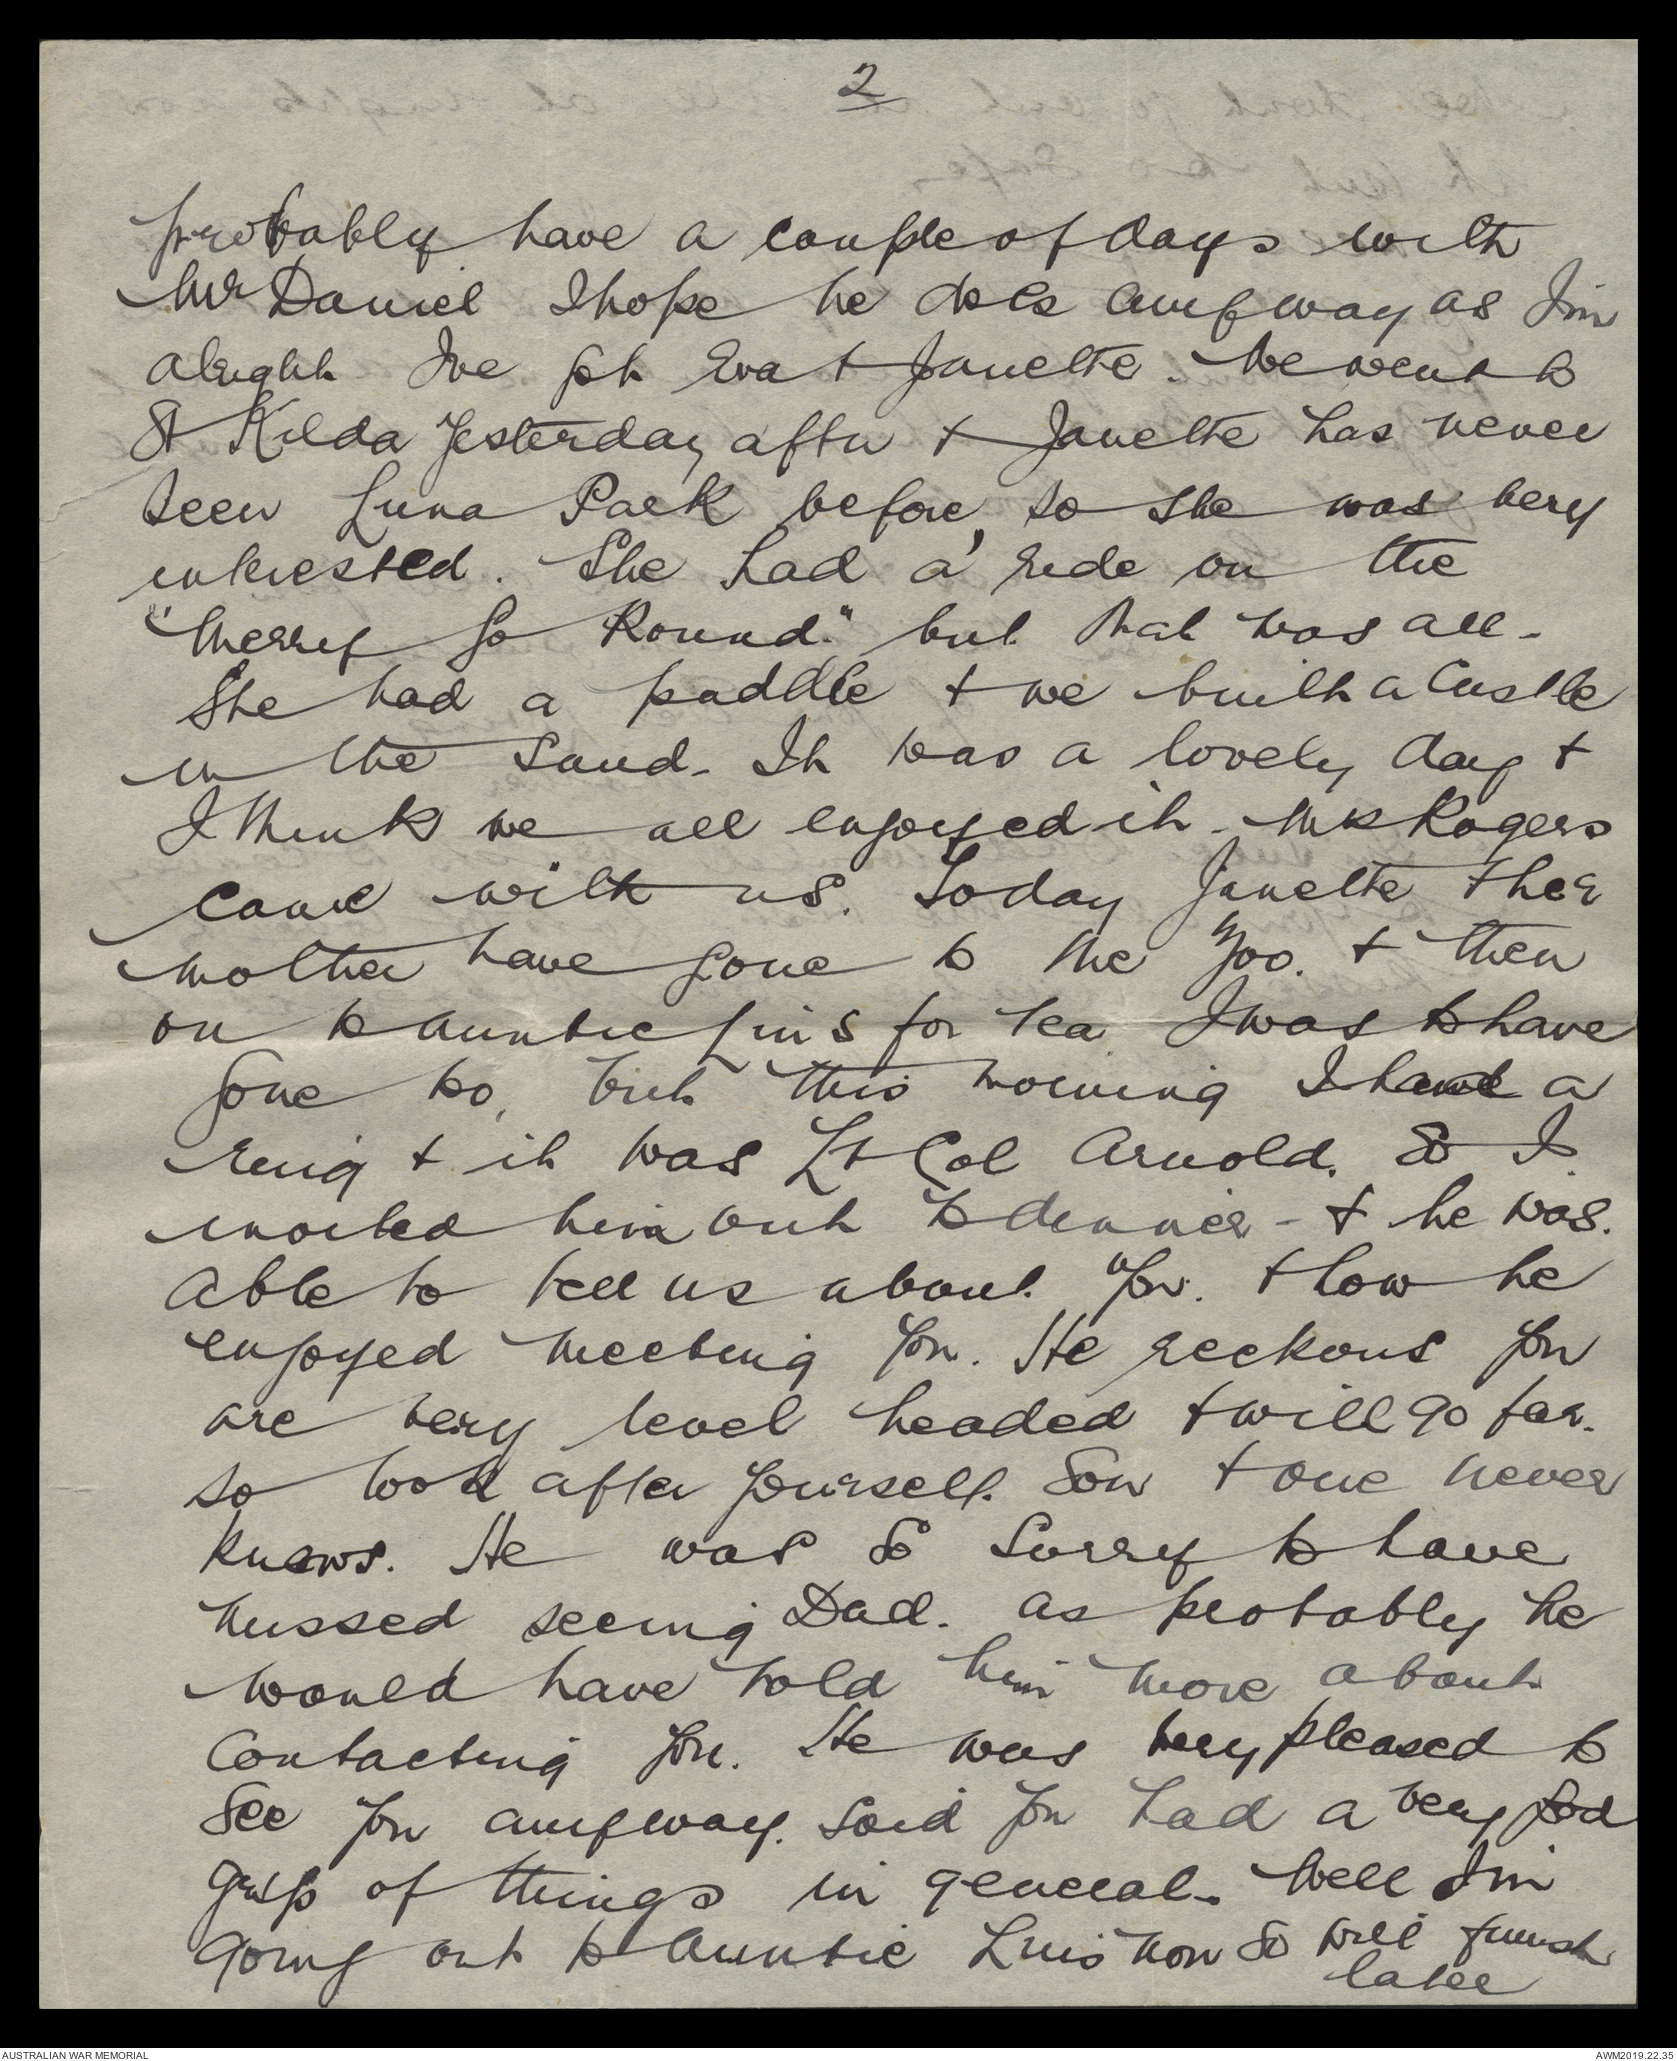 2
probably have a couple of days with
Mr Daniel I hope he does anyway as I'm
alright I've got Eva + Janette. We went to
St Kilda yesterday after + Janette has never
seen Luna Park before, so she was very
interested. She had a ride on the
"Merry Go Round." but that was all.
She had a paddle + we built a castle
in the sand. It was a lovely day +
I think we all enjoyed it. Mrs Rogers
came with us. Today Janette + her
mother have gone to the Zoo. + then
on to Auntie Lin's for tea I was to have
gone to, but this morning I had a
ring + it was Lt Col Arnold. So I
invited him out to dinner - + he was.
able to tell us about you. + how he
enjoyed meeting you. He reckons you
are very level headed + will go far.
so look after yourself. Son + one never
knows. He was so sorry to have
missed seeing Dad. as probably he
would have told him more about
contacting you. He was very pleased to
see you anyway. Said you had a very good
grip of things in general. Well I'm
going out to Auntie Lin's now so will finish
later
AUSTRALIAN WAR MEMORIAL
AWM2019.22.35